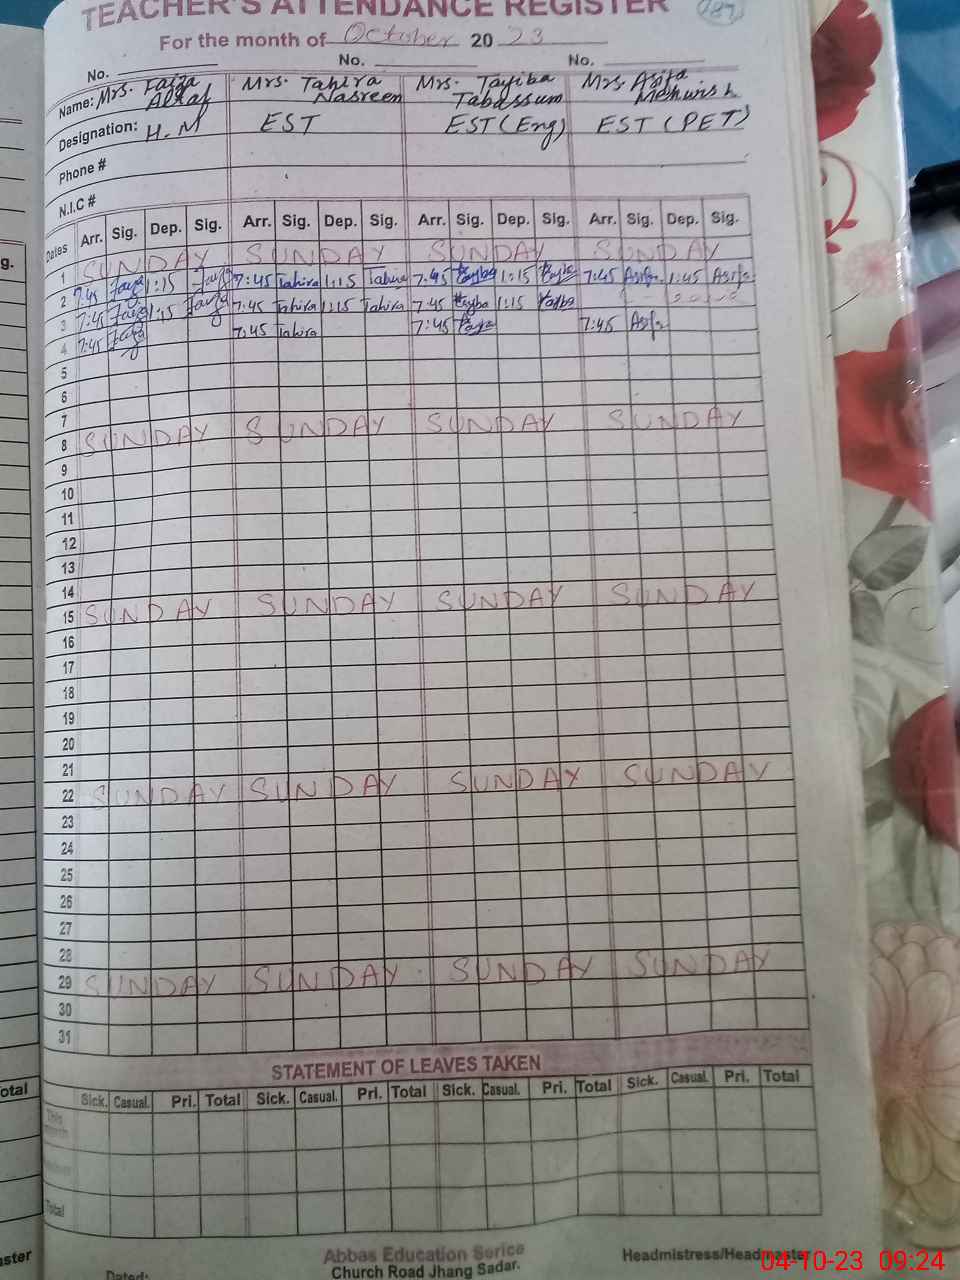 TEACHER'S ATTENDANCE REGISTER
For the month of October 2023
No. No. No.
Name: Mrs. Faiza Mrs. Tahira Mrs. Tayiba Mrs. Asifa
Altaf Nasreen Tabassum Mehwish
Designation: H.M EST EST (Eng) EST (PET)
Phone #
N.I.C #
Dates Arr. Sig. Dep. Sig. Arr. Sig. Dep. Sig. Arr. Sig. Dep. Sig. Arr. Sig. Dep. Sig.
1 SUNDAY SUNDAY SUNDAY SUNDAY
2 7:45 Faiza 1:15 Faiza 7:45 Tahira 1:15 Tahira 7:45 Tayba 1:15 Tayba 7:45 Asifa 1:45 Asifa
3 7:45 Faiza 1:15 Faiza 7:45 Tahira 1:15 Tahira 7:45 Tayba 1:15 Tayba
4 7:45 Faiza 7:45 Tahira 7:45 Tayba 7:45 Asifa
5
6
7
8 SUNDAY SUNDAY SUNDAY SUNDAY
9
10
11
12
13
14
15 SUNDAY SUNDAY SUNDAY SUNDAY
16
17
18
19
20
21
22 SUNDAY SUNDAY SUNDAY SUNDAY
23
24
25
26
27
28
29 SUNDAY SUNDAY SUNDAY SUNDAY
30
31
STATEMENT OF LEAVES TAKEN
Sick. Casual. Pri. Total Sick. Casual. Pri. Total Sick. Casual. Pri. Total Sick. Casual. Pri. Total
This Month
Total
Abbas Education Serice
Church Road Jhang Sadar.
Dated:
Headmistress/Headmaster
04-10-23 09:24